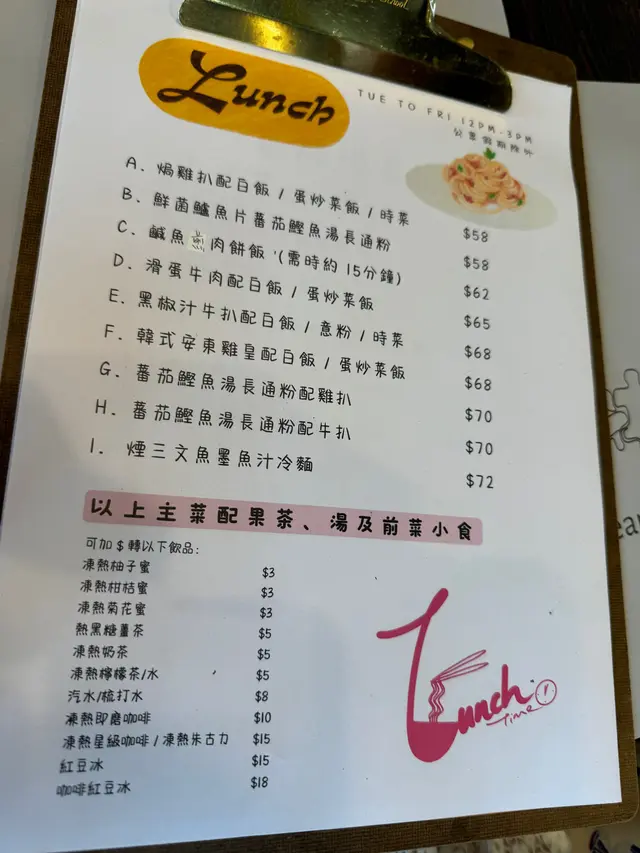 Lunch
TUE TO FRI 12PM-3PM
公眾假期除外
A. 焗雞扒配白飯 / 蛋炒菜飯 / 時菜 $58
B. 鮮菌鱸魚片蕃茄鰹魚湯長通粉 $58
C. 鹹魚蒸肉餅飯 (需時約 15分鐘) $62
D. 滑蛋牛肉配白飯 / 蛋炒菜飯 $65
E. 黑椒汁牛扒配白飯 / 意粉 / 時菜 $68
F. 韓式安東雞皇配白飯 / 蛋炒菜飯 $68
G. 蕃茄鰹魚湯長通粉配雞扒 $70
H. 蕃茄鰹魚湯長通粉配牛扒 $70
I. 煙三文魚墨魚汁冷麵 $72
以上主菜配果茶、湯及前菜小食
可加$轉以下飲品:
凍熱柚子蜜 $3
凍熱柑桔蜜 $3
凍熱菊花蜜 $3
熱黑糖薑茶 $5
凍熱奶茶 $5
凍熱檸檬茶/水 $5
汽水/梳打水 $8
凍熱即磨咖啡 $10
凍熱星級咖啡 / 凍熱朱古力 $15
紅豆冰 $15
咖啡紅豆冰 $18
Lunch
Time